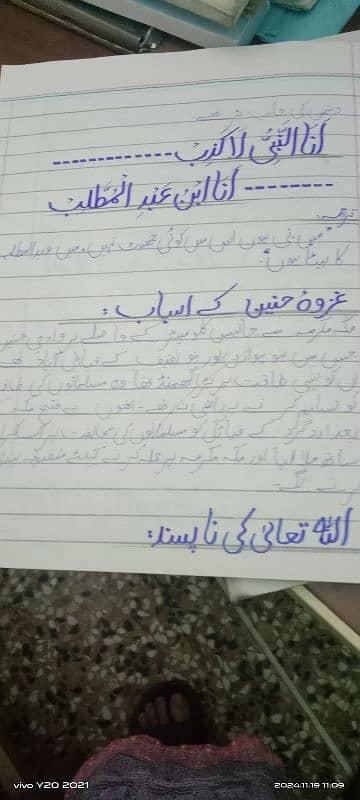 اَنَا النَّبِیُّ لَا کَذِبْ -------------
-------- اَنَا ابْنُ عَبْدِ الْمُطَّلِبْ
ترجمہ:
"میں نبی ہوں اس میں کوئی جھوٹ نہیں۔ میں عبدالمطلب
کا بیٹا ہوں۔"
غزوۂ حنین کے اسباب:
مکہ مکرمہ سے چالیس کلومیٹر کے فاصلے پر وادی حنین
جس میں بنو ہوازن اور بنو ثقیف کے قبائل آباد تھے
طاقت پر بڑا گھمنڈ تھا وہ مسلمانوں کی
کو تسلیم کرنے پر راضی نہ تھے۔ انھوں نے فتح مکہ کے
بعد ارد گرد کے قبائل کو مسلمانوں کی مخالفت پر
ساتھ ملا لیا اور مکہ مکرمہ پر حملہ کرنے کے لیے
کرنے لگے۔
اللہ تعالیٰ کی ناپسند:
vivo Y20 2021
2024.11.19 11:09